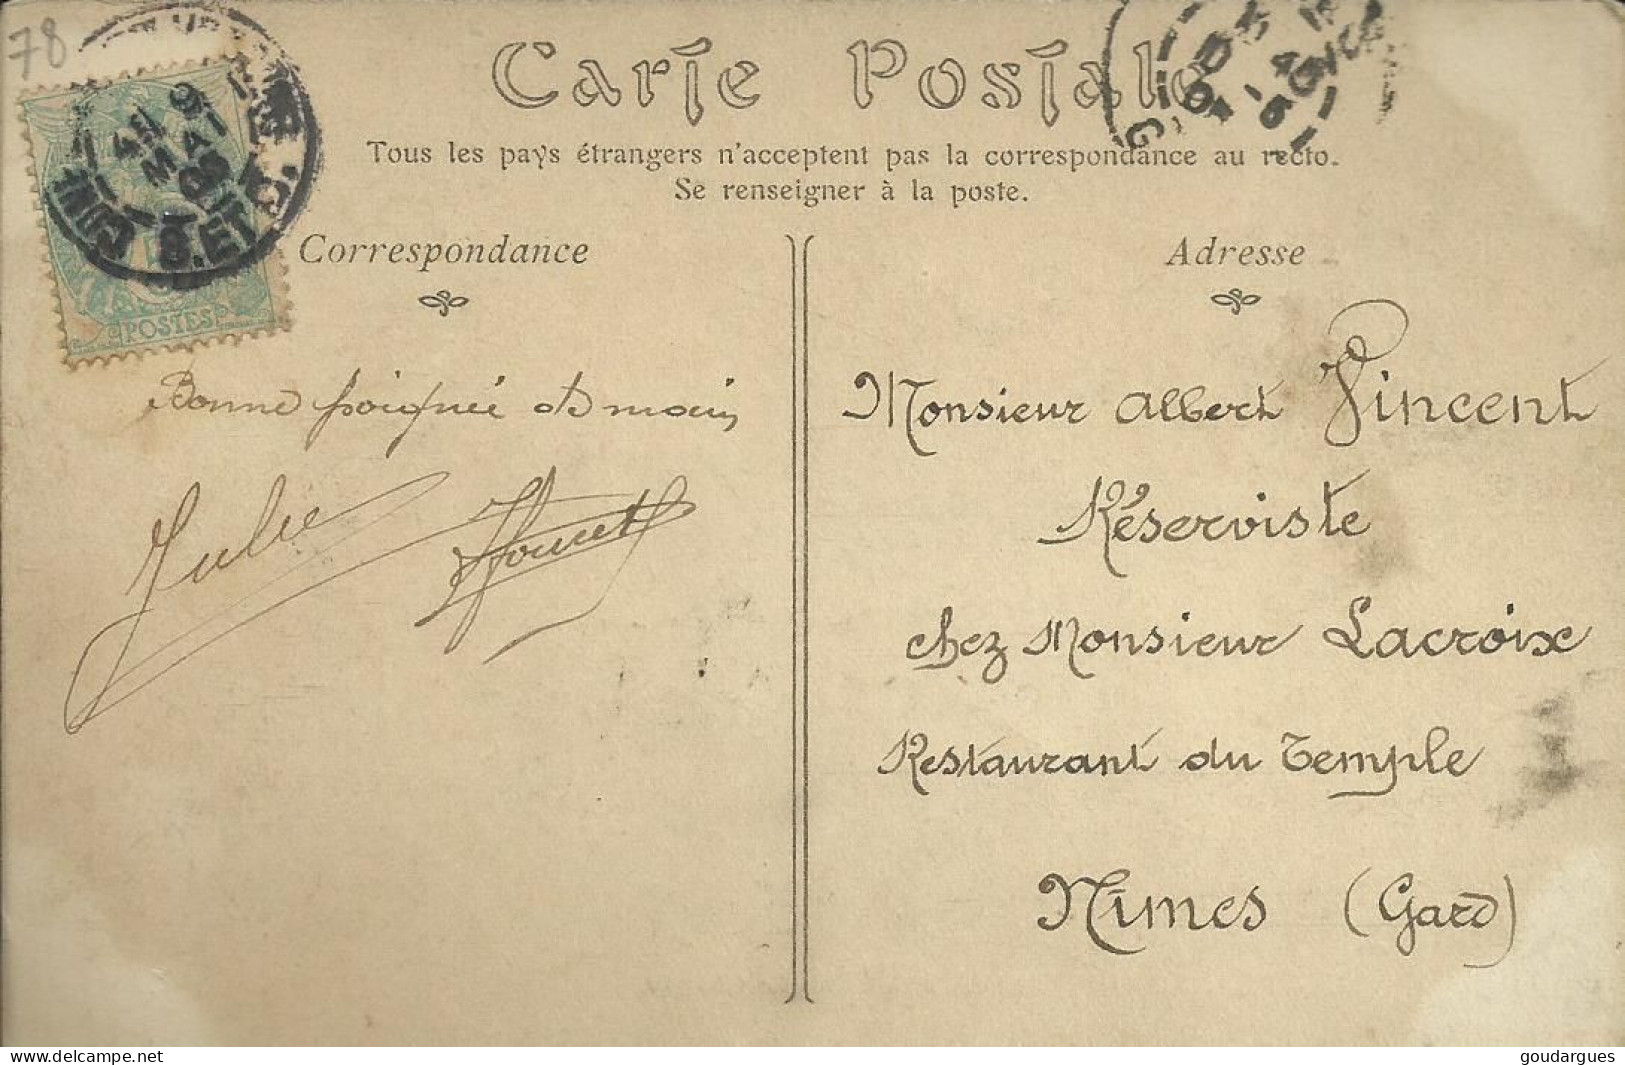 78
Carte Postale
Tous les pays étrangers n'acceptent pas la correspondance au recto.
Se renseigner à la poste.
Correspondance
POSTES
Bonne poignée de main
Julie
Adresse
Monsieur Albert Vincent
Réserviste
chez Monsieur Lacroix
Restaurant du Temple
Nimes (Gard)
delcampe.net
goudargues